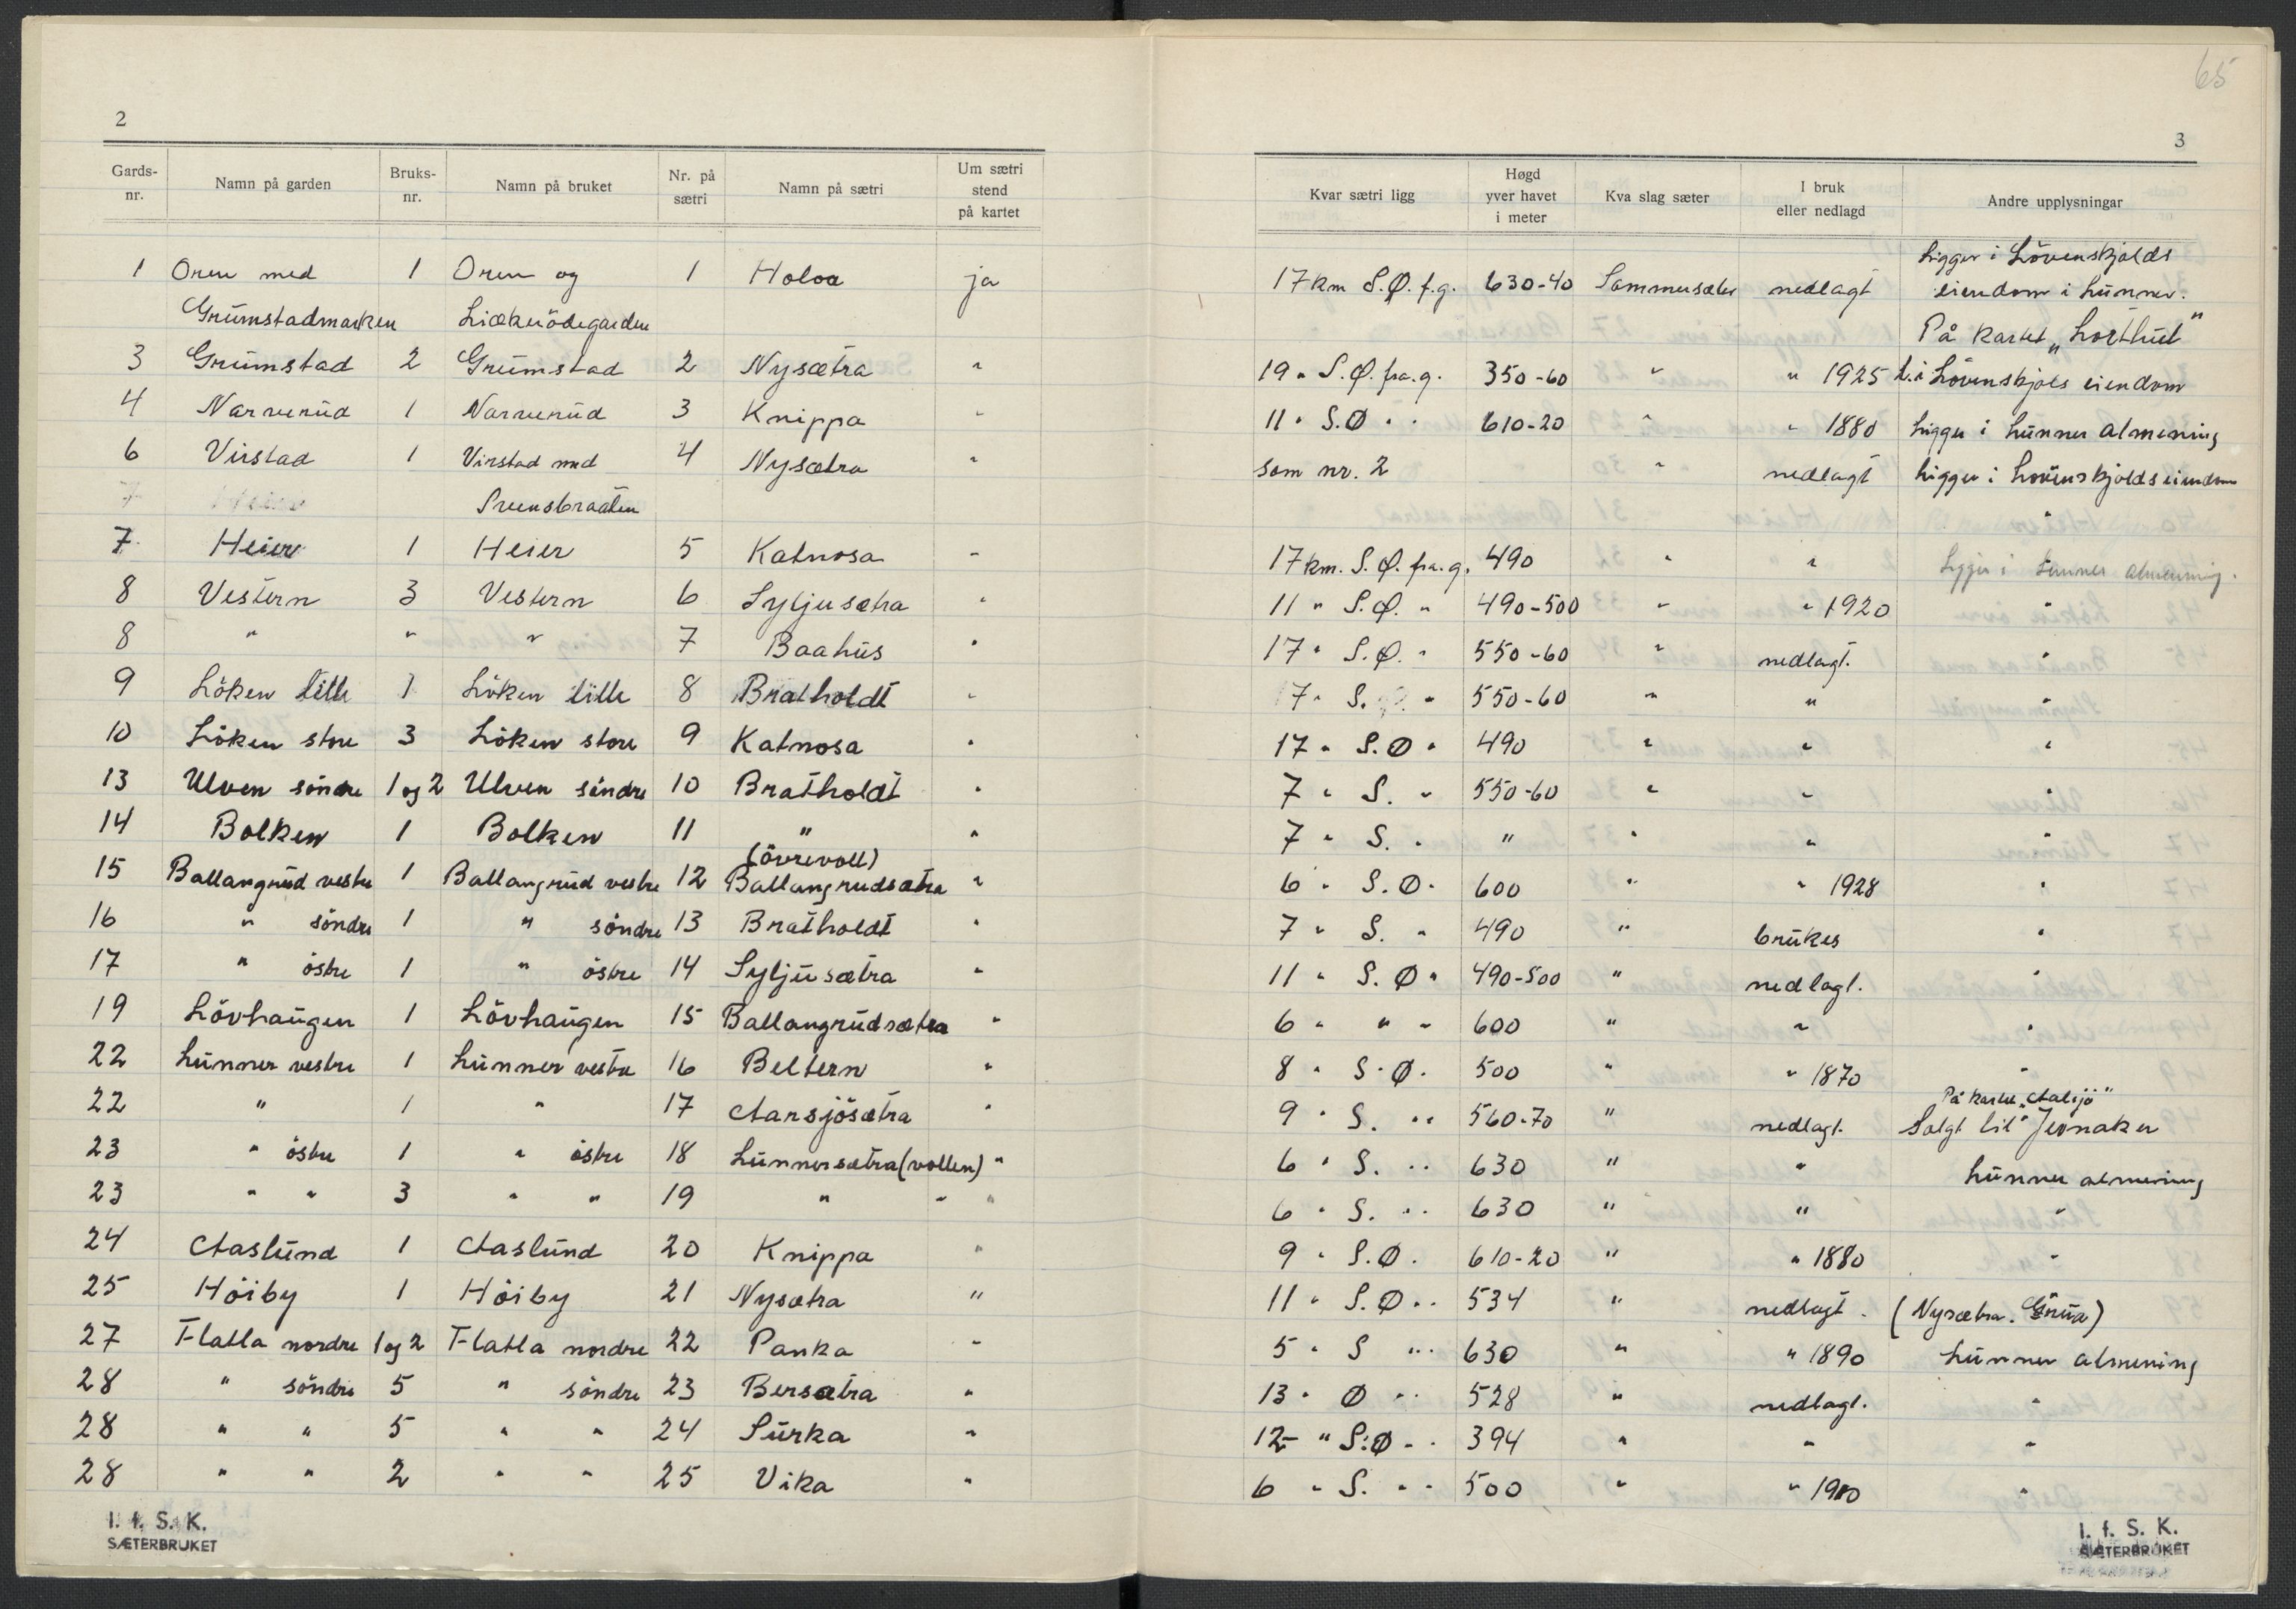 65
2
3
Gards-nr. Namn på garden Bruks-nr. Namn på bruket Nr. på sætri Namn på sætri Um sætri stend på kartet Kvar sætri ligg Høgd yver havet i meter Kva slag sæter I bruk eller nedlagd Andre upplysningar
Ligger i Lövenskjolds
1 Oren med 1 Oren og 1 Holoa ja 17 km S.Ø. f.g. 630-40 Sommersæter nedlagt eiendom i Lunner.
Grumstadmarken Liækerödegarden På kartet „Lorthul"
3 Grumstad 2 Grumstad 2 Nysætra " 19 " S.Ø. fra. g. 350-60 " " 1925 L. i Lövenskjols eiendom
4 Narverud 1 Narverud 3 Knippa " 11 " S.Ø " " 610-20 " " 1880 Ligger i Lunner almening
6 Virstad 1 Virstad med 4 Nysætra " som nr. 2 " nedlagt Ligger i Lövenskjolds eiendom
7 Heier Svensbraaten "
7 Heier 1 Heier 5 Katnosa " 17 km. S.Ø. fra. g. 490 " " Ligger i Lunner almening.
8 Vestern 3 Vestern 6 Syljusætra " 11 " S.Ø. " 490-500 " " 1920 "
8 " " " 7 Baahus " 17 " S.Ø. " 550-60 " nedlagt. "
9 Löken lille 1 Löken lille 8 Bratholdt " 7 " S. " 550-60 " " "
10 Löken store 3 Löken store 9 Katnosa " 17 " S.Ø " 490 " " "
13 Ulven söndre 1 og 2 Ulven söndre 10 Bratholdt " 7 " S. " 550-60 " " "
14 Bolken 1 Bolken 11 " " 7 " S. " " " " "
(övrevoll)
15 Ballangrud vestre 1 Ballangrud vestre 12 Ballangrudsætra " 6 " S.Ø. 600 " " 1928 "
16 " söndre 1 " söndre 13 Bratholdt " 7 " S. " 490 " brukes "
17 " östre 1 " östre 14 Syljusætra " 11 " S.Ø " 490-500 " nedlagt. "
19 Lövhaugen 1 Lövhaugen 15 Ballangrudsætra " 6 " " " 600 " " "
22 Lunner vestre 1 Lunner vestre 16 Beltern " 8 " S.Ø. 500 " " 1870 "
På kartet „Aalsjö"
22 " 1 " 17 Aarsjösætra " 9 " S. " " 560-70 " nedlagt. Solgt til Jevnaker
23 " östre 1 " östre 18 Lunnersætra (vollen) " 6 " S. " " 630 " " Lunner almening
23 " " 3 " " 19 " " " 6 " S. " " 630 " " "
24 Aaslund 1 Aaslund 20 Knippa " 9 " S.Ø. 610-20 " " 1880 "
25 Höiby 1 Höiby 21 Nysætra " 11 " S.Ø " " 534 " nedlagt. (Nysætra. Grua)
27 Flatla nordre 1 og 2 Flatla nordre 22 Panka " 5 " S " " 630 " " 1890 Lunner almening
28 " söndre 5 " söndre 23 Bersætra " 13 " Ø " " 528 " nedlagt. "
28 " " 5 " " 24 Surka " 12 " S.Ø " " 394 " " "
28 " " 2 " " 25 Vika " 6 " S. " " 500 " " "
I. f. S. K.
SÆTERBRUKET
I. f. S. K.
SÆTERBRUKET